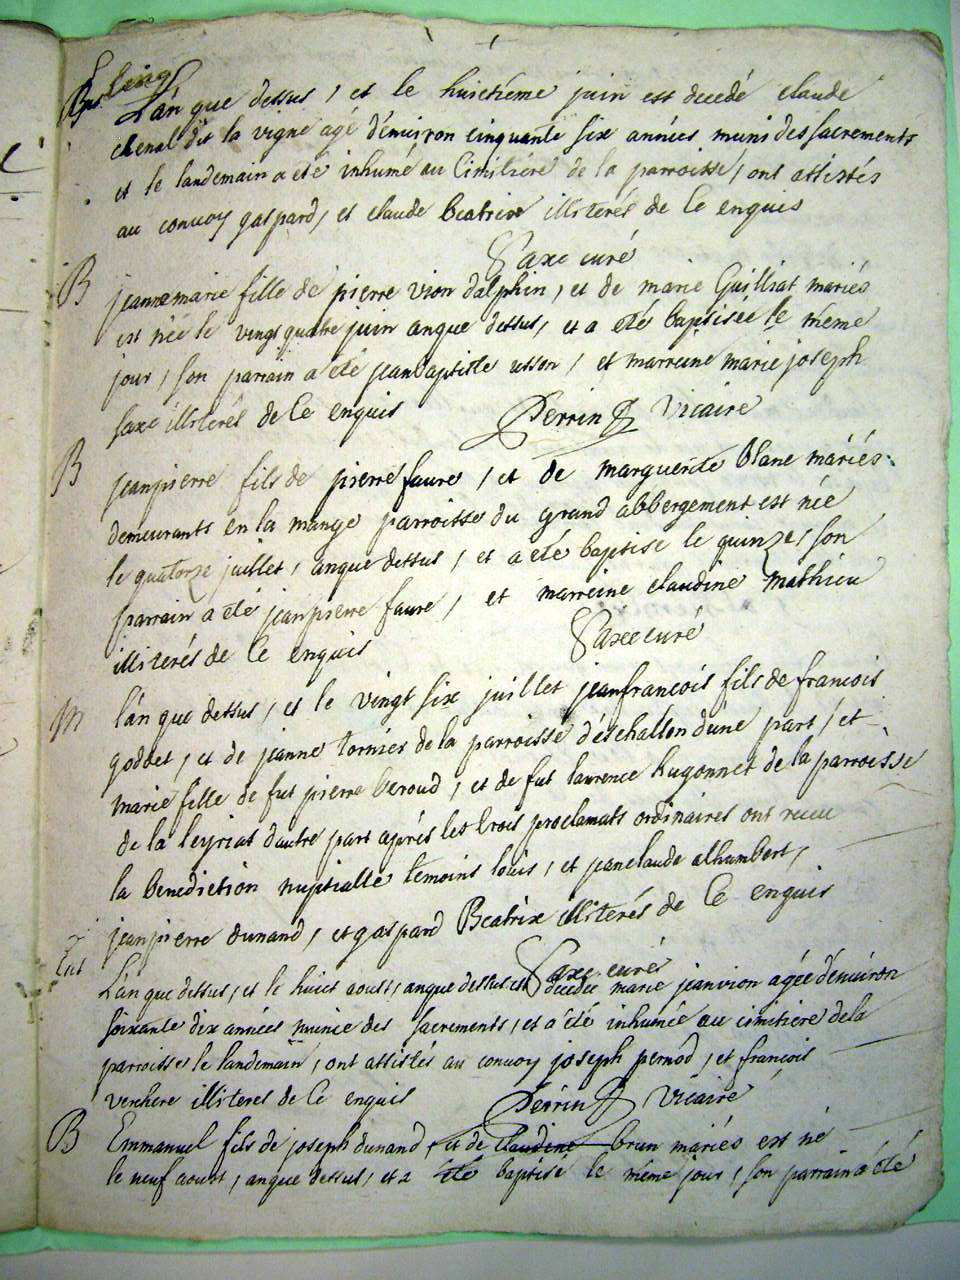 L'an que dessus, et le huictiéme juin est decedé claude
chenal dit la vigne agé d'environ cinquante six années muni des sacrements
et le landemain a eté inhumé au Cimitiére de la parroisse, ont assistés
au convoy gaspard, et claude beatrix illiterés de ce enquis
Saxe curé
B jeanne marie fille de pierre vion dalphin, et de marie Guilliat mariés
est née le vingt quatre juin anque dessus, et a eté baptisée le méme
jour, son parrain a eté jean baptiste usson, et marreine marie joseph
saxe illiterés de ce enquis Perrin Vicaire
B jean pierre fils de pierre favre, et de marguerite blanc mariés
demeurants en la mange parroisse du grand abbergement est née
le quatorze juillet, anque dessus, et a eté baptisé le quinze, son
parrain a eté jean pierre favre, et marreine claudine mathieu
illiterés de ce enquis Saxe curé
M l'an que dessus, et le vingt six juillet jean francois fils de francois
goddet, et de jeanne tornier de la parroisse d'eschallon d'une part, et
marie fille de fut pierre beroud, et de fut laurence hugonnet de la parroisse
de la leyriat d'autre part aprés les trois proclamats ordinaires ont receu
la benediction nuptialle temoins louis, et jean claude alhumbert,
jean pierre dunand, et gaspard Beatrix illiterés de ce enquis
Saxe curé
L'an que dessus, et le huict aoust, anque dessus est decedée marie jeanvion agée d'environ
soixante dix années munie des sacrements, et a été inhumée au cimitiere de la
parroisse le landemain, ont assistés au convoy joseph pernod, et francois
verchere illiteres de ce enquis Perrin Vicaire
B Emmanuel fils de joseph dunand, et de claudine brun mariés est né
le neuf aoust, anque dessus, et a eté baptisé le méme jour, son parrain a eté